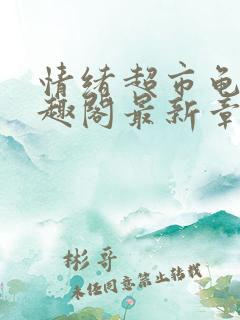 情绪超市龟
趣阁最新章
彬哥
未经同意禁止转载